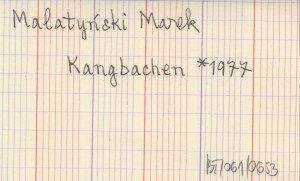 Małatyński Marek
Kangbachen *1977
BT/061/0653